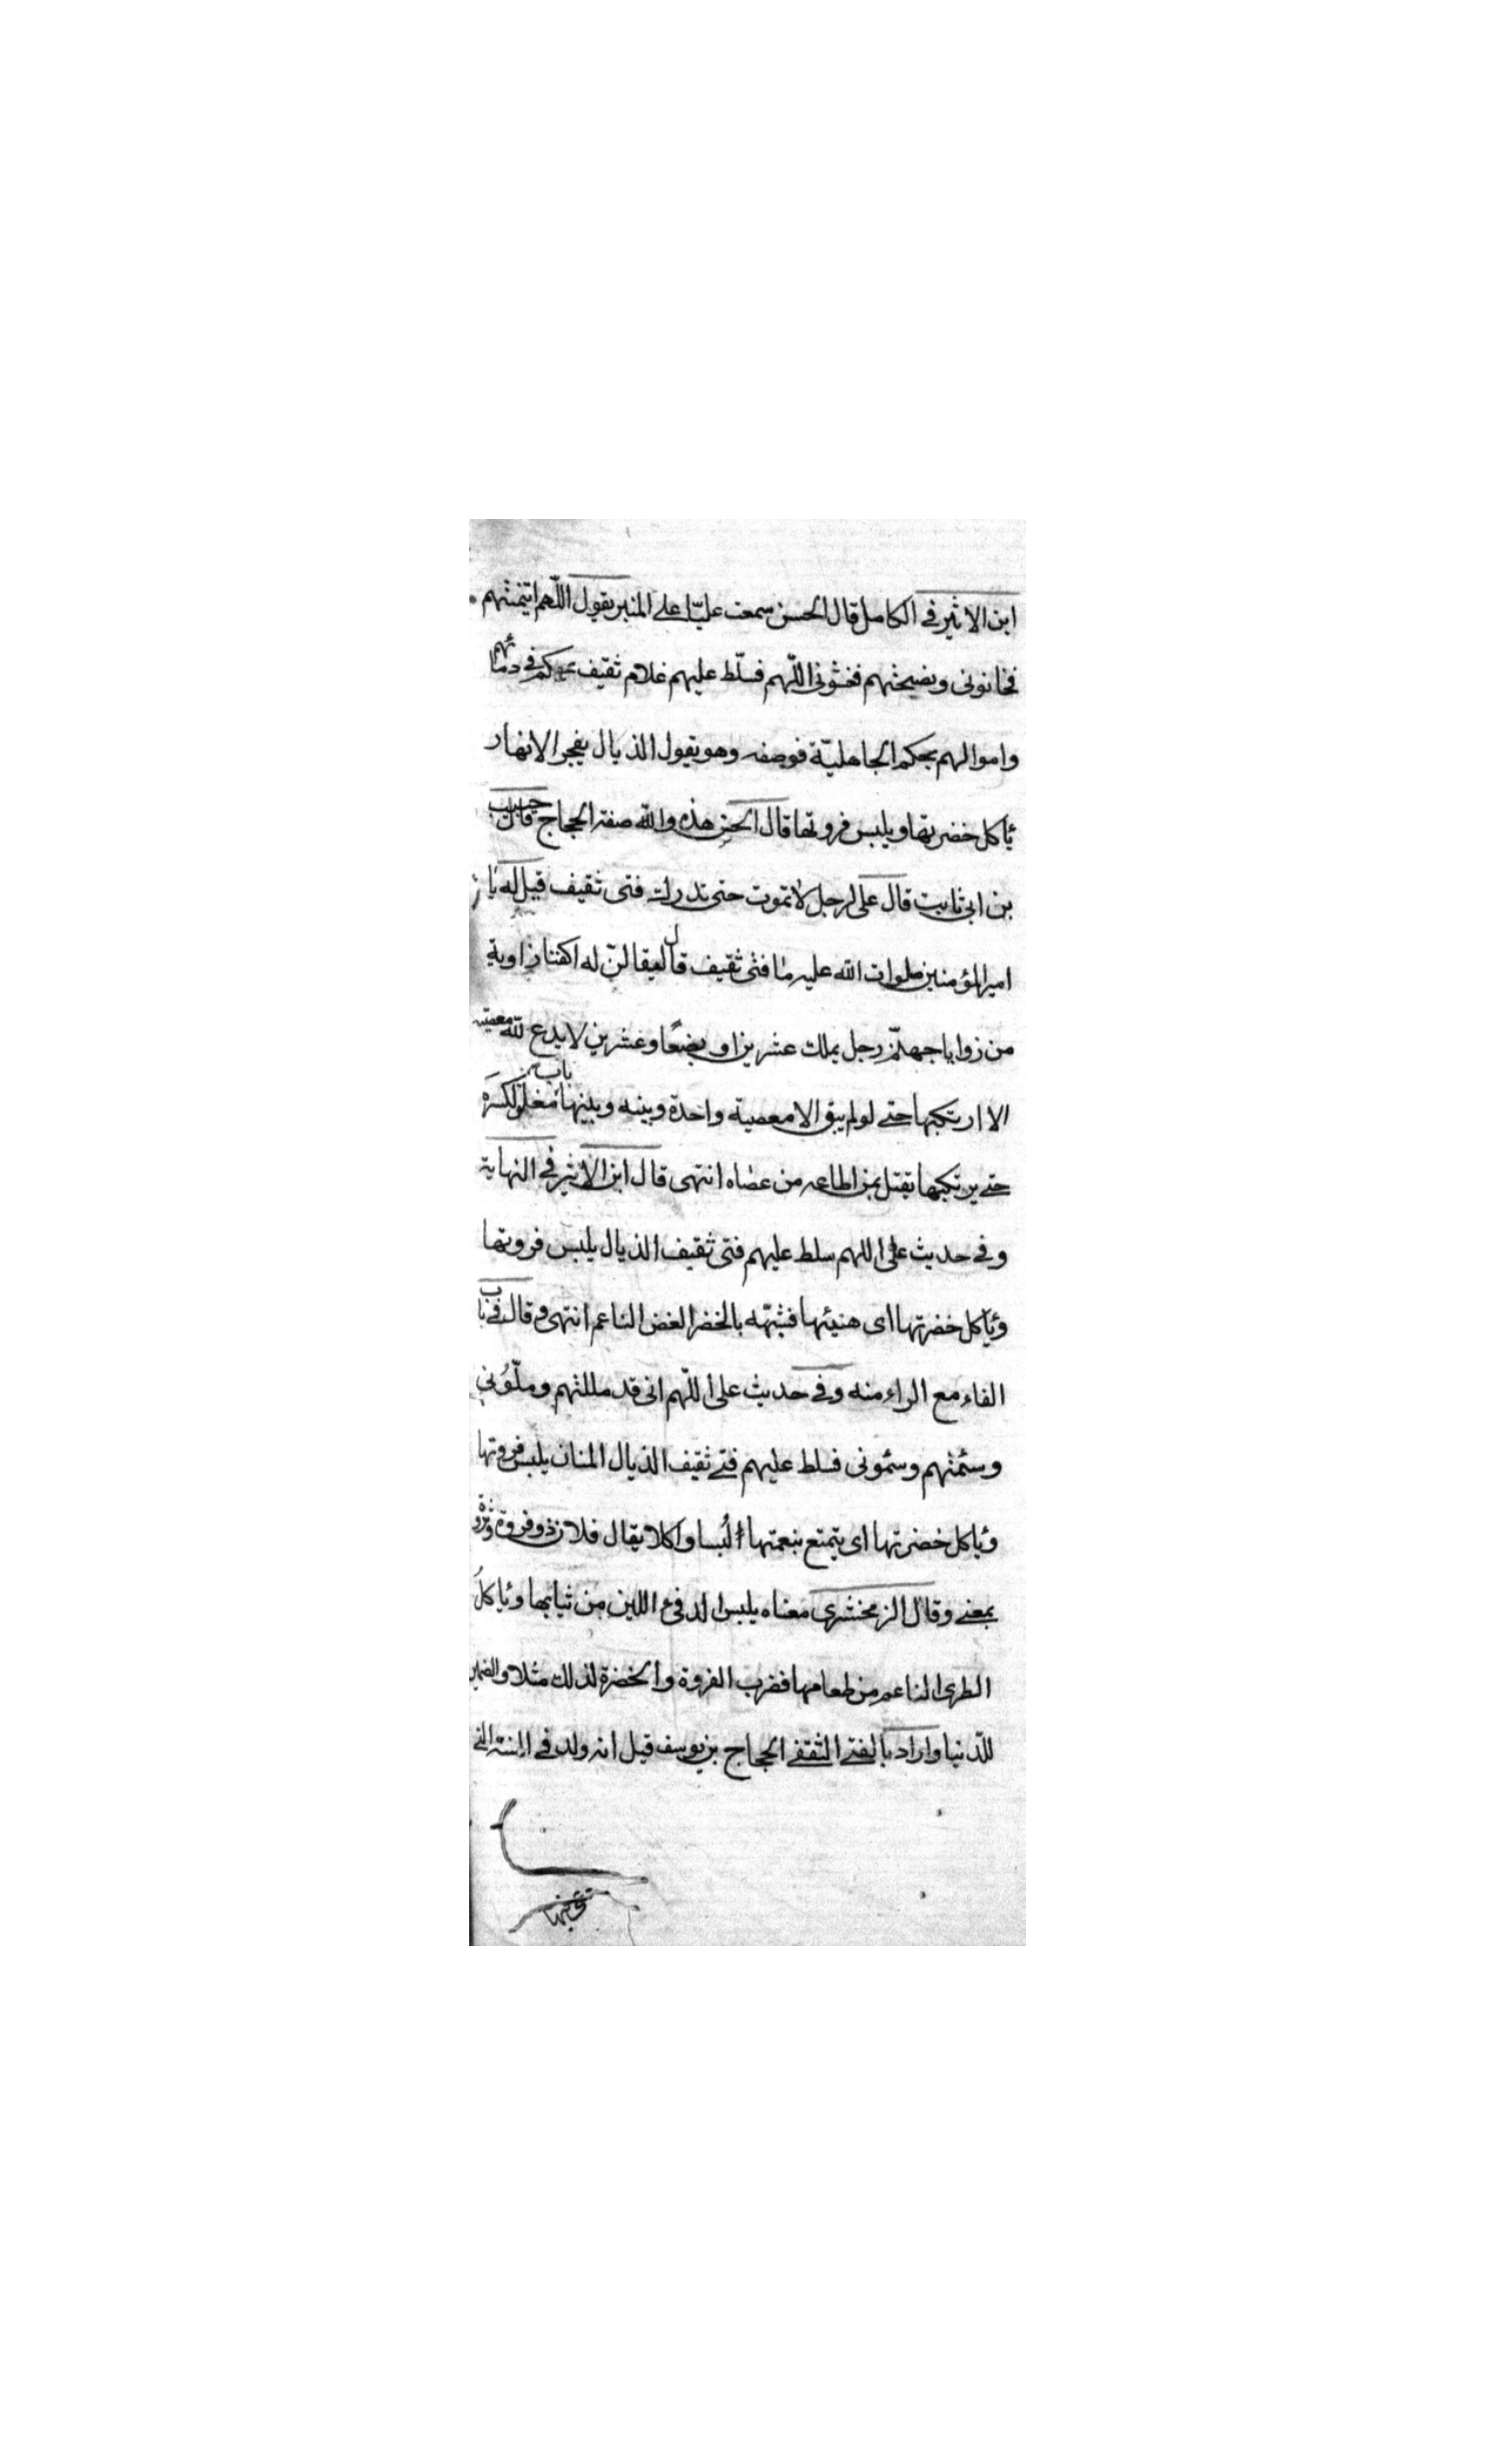 ابن الاثير في الكامل قال الحسن سمعت عليّا على المنبر يقول اللّهم ائتمنتهم
فخانوني ونصحتهم فغشوني اللّهم فسلّط عليهم غلام ثقيف يحكم في دمائهم
واموالهم بحكم الجاهليّة فوصفه وهو يقول الذيال يفجر الانهار
يأكل خضرتها ويلبس فروتها قال الحسن هذه والله صفة الحجاج قال حبيب
بن ابي ثابت قال على لرجل لا تموت حتى تدرك فتى ثقيف قيل له يا
امير المؤمنين صلوات الله عليه ما فتى ثقيف قال ليقالنّ له اكفنا زاوية
من زوايا جهنّم رجل يملك عشرين او بضعًا وعشرين لا يدع لله معصية
الا ارتكبها حتى لو لم يبق الا معصية واحدة وبينه وبينها باب مغلق لكسره
حتى يرتكبها يقتل بمن اطاعه من عصاه انتهى قال ابن الاثير في النهاية
وفي حديث على اللهم سلط عليهم فتى ثقيف الذيال يلبس فروتها
ويأكل خضرتها اى هنيئها فشبّهه بالخضر الغض الناعم انتهى وقال في باب
الفاء مع الراء منه وفي حديث على اللّهم انى قد مللتهم وملّوني
وسئمتهم وسئمونى فسلط عليهم فتى ثقيف الذيال المنان يلبس فروتها
ويأكل خضرتها اى يتمتع بنعمتها لبسا واكلا يقال فلان ذو فروة وثروة
بمعنى وقال الزمخشرى معناه يلبس الدفئ اللين من ثيابها ويأكل
الطرى الناعم من طعامها فضرب الفروة والخضرة لذلك مثلا والضمير
للدّنيا واراد بالفتى الثقفى الحجاج بن يوسف قيل انه ولد في السنة التى